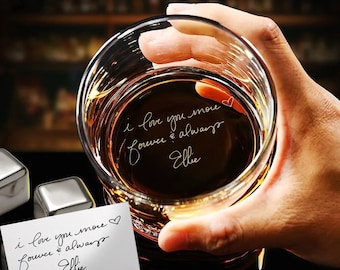 i love you more ♡
forever & always
Ellie
i love you more ♡
forever & always
Ellie